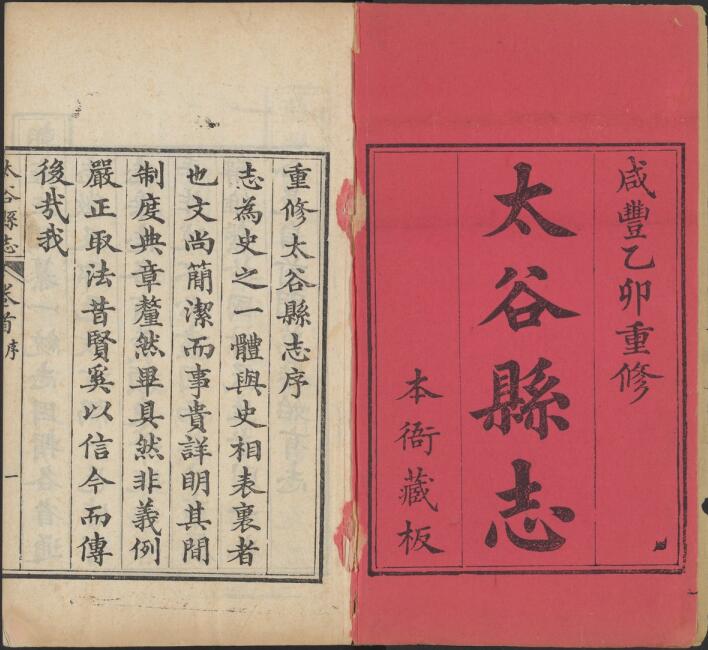 咸豐乙卯重修
太谷縣志
本衙藏板
重修太谷縣志序
志為史之一體與史相表裏者
也文尚簡潔而事貴詳明其間
制度典章釐然畢具然非義例
嚴正取法昔賢奚以信今而傳
後哉我
太谷縣志 卷首 序 一